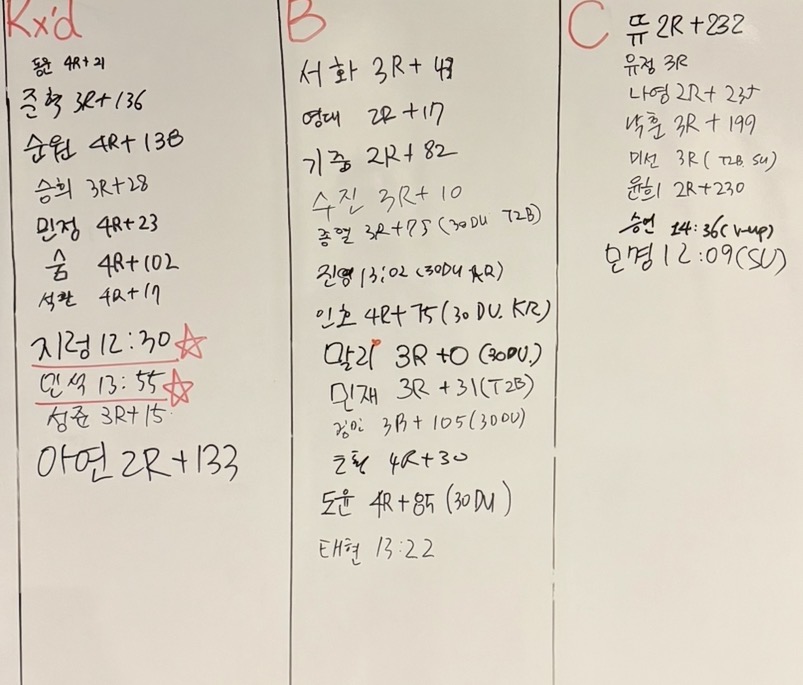 Rx'd
동운 4R+21
준혁 3R+136
순원 4R+138
승희 3R+28
민정 4R+23
숨 4R+102
석환 4R+17
지령 12:30
민석 13:55
성준 3R+15
아연 2R+133
B
서화 3R+
영대 2R+17
기중 2R+82
수진 3R+10
종열 3R+75 (30DU T2B)
진영 13:02 (30DU KR)
인호 4R+75 (30 DU. KR)
말리 3R+0 (30DU.)
민재 3R+31 (T2B)
3R+105 (30DU)
4R+30
도윤 4R+85 (30DU)
태현 13:22
C
뜌 2R+232
유정 3R
나영 2R+235
낙훈 3R+199
미선 3R (T2B. SU)
윤희 2R+230
승언 14:36 (V-up)
모경 12:09 (SU)